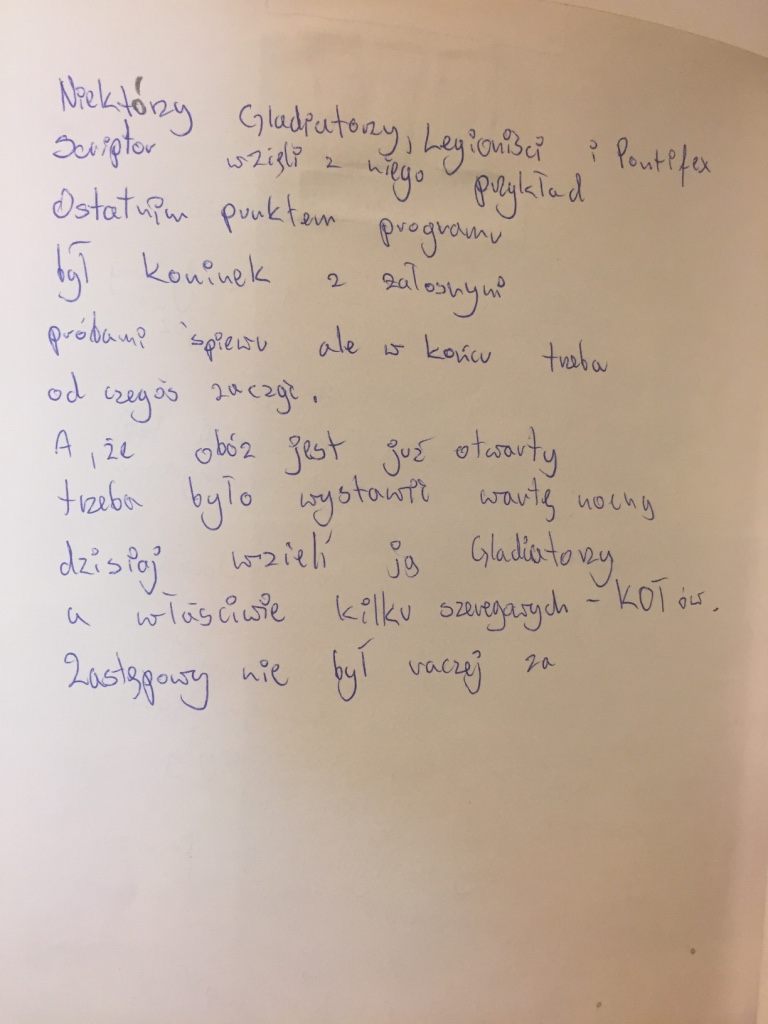 Niektórzy Gladiatorzy, Legioniści i Pontifex
Scriptor wzięli z niego przykład
Ostatnim punktem programu
był kominek z żałosnymi
próbami śpiewu ale w końcu trzeba
od czegoś zacząć.
A, że obóz jest już otwarty
trzeba było wystawić wartę nocną
dzisiaj wzieli ją Gladiatorzy
a właściwie kilku szeregowych - KOTów.
Zastępowy nie był raczej za